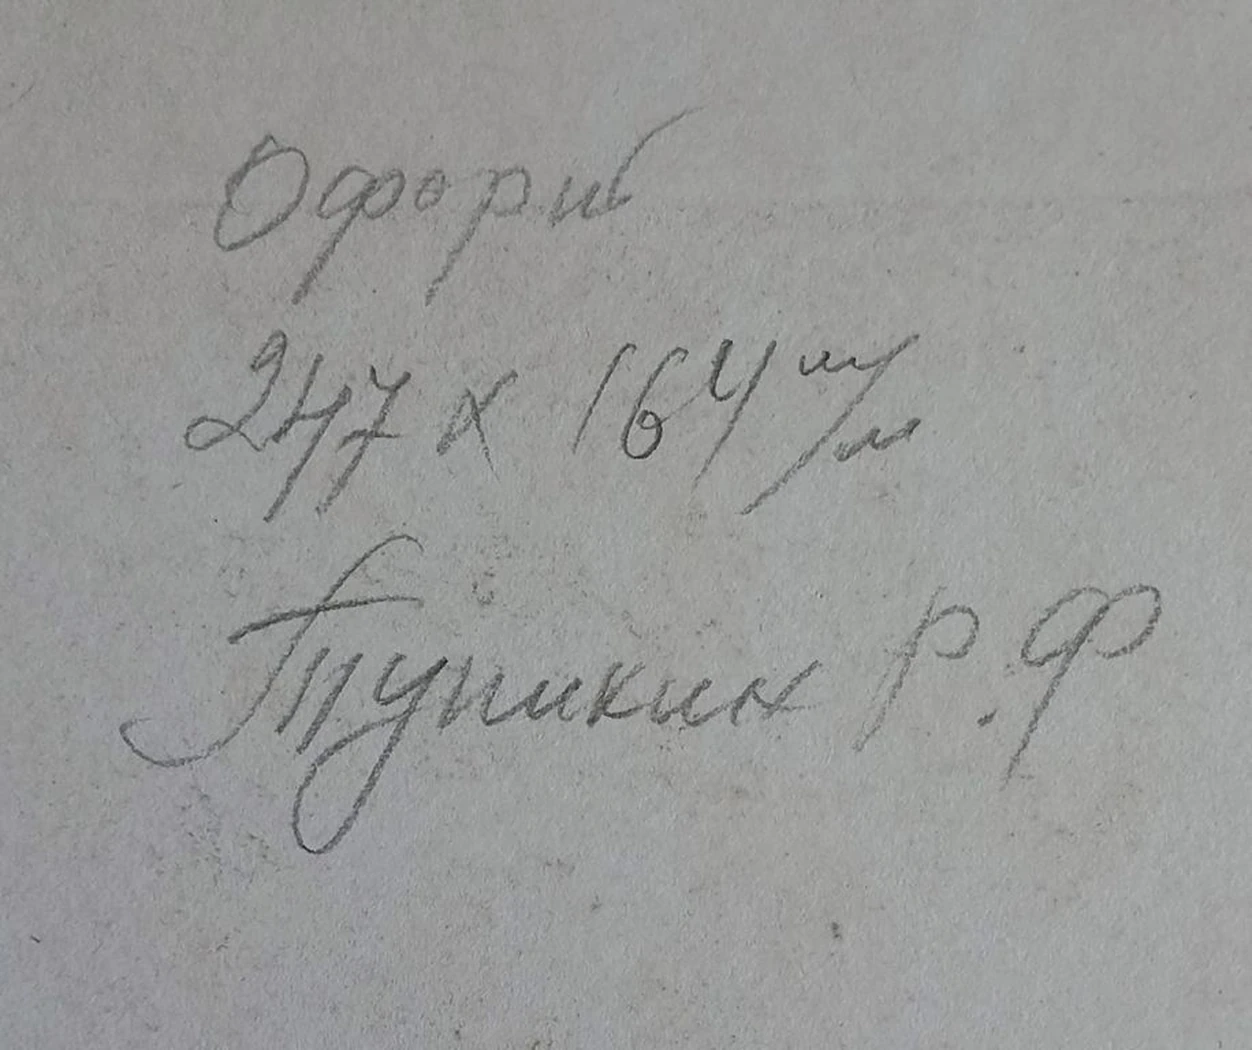 Офорт
247 х 164 м/м
Тупикин Р.Ф